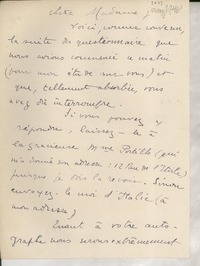 Chère Madame,
Voici, comme convenu,
la suite du questionnaire que
nous avions commencé ce matin
(sous mon être de me voir) et
que, tellement absorbée, vous
avez dû interrompre.
Si vous pouvez y
répondre, laissez-le à
la gracieuse Mme Portillo (qui
m'a donné son adresse : 12 Rue de l'Etoile)
puisque je dois la revoir. Sinon
envoyez-le moi d'Italie (à
mon adresse)
Quant à votre auto-
graphe nous serons extrêmement